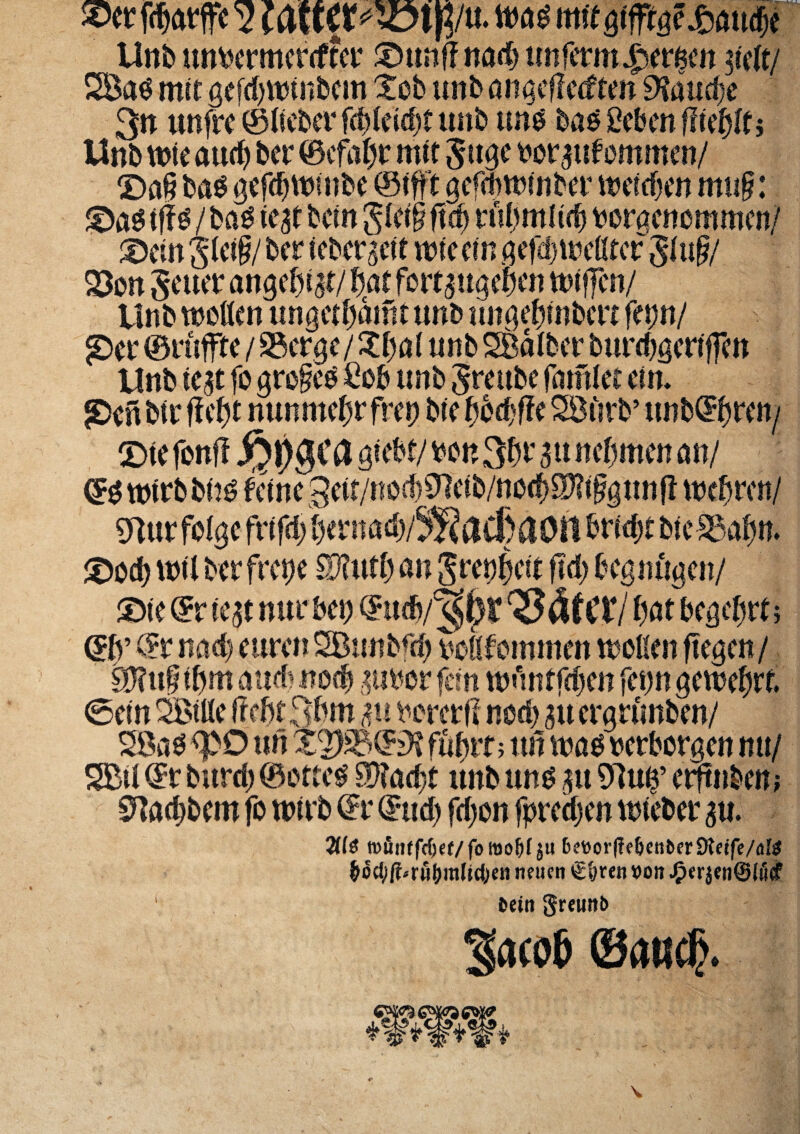 Der scharffe Natter-Biß/u. was mit gifftgẽ Hauche
Und unvermerckter Dunst nach unserm Hertzen zielt/
Was mit geschwindem Tod und angesteckten Rauche
In unsre Glieder schleicht und uns das Leben stiehlt;
Und wie auch der Gefahr mit Fuge vorzukommen/
Daß das geschwinde Gifft geschwinder weichen muß:
Das ists/das iezt dein Fleiß sich rühmlich vorgenommen/
Dein Fleiß/der iederzeit wie ein geschwellter Fluß/
Von Feuer angehizt/hat fortzugehen wissen/
Und wollen ungethämt und ungehindert seyn/
Der Grüffte/Berge/Thal und Wälder durchgerissen
Und iezt so großes Lob und Freude samlet ein.
Deñ dir steht nunmehr frey die höchste Würd' und Ehren/
Die sonst Hygea giebt/von Ihr zu nehmen an/
Es wird diß keine Zeit/noch Neid/noch Mißgunst wehren/
Nur folge frisch hernach/Machaon bricht die Bahn.
Doch wil der freye Muth an Freyheit sich begnügen/
Die Er iezt nur bey Euch/Ihr Väter/hat begehrt;
Eh' Er nach euren Wundsch vollkommen wollen siegen/
Muß ihm auch noch zuvor sein wüntschen seyn gewehrt.
Sein Wille steht Ihm zu vorerst noch zu ergründen/
Was PO uñ TYBER führt; uñ was verborgen nu/
Wil Er durch Gottes Macht und uns zu Nutz' erfinden;
Nachdem so wird Er Euch schon sprechen wieder zu.
Als wüntschet/so wohl zu bevorstehender Reise/als
höchst-rühmlichen neuen Ehren von HerzenGlück
dein Freund
Jacob Gauch.